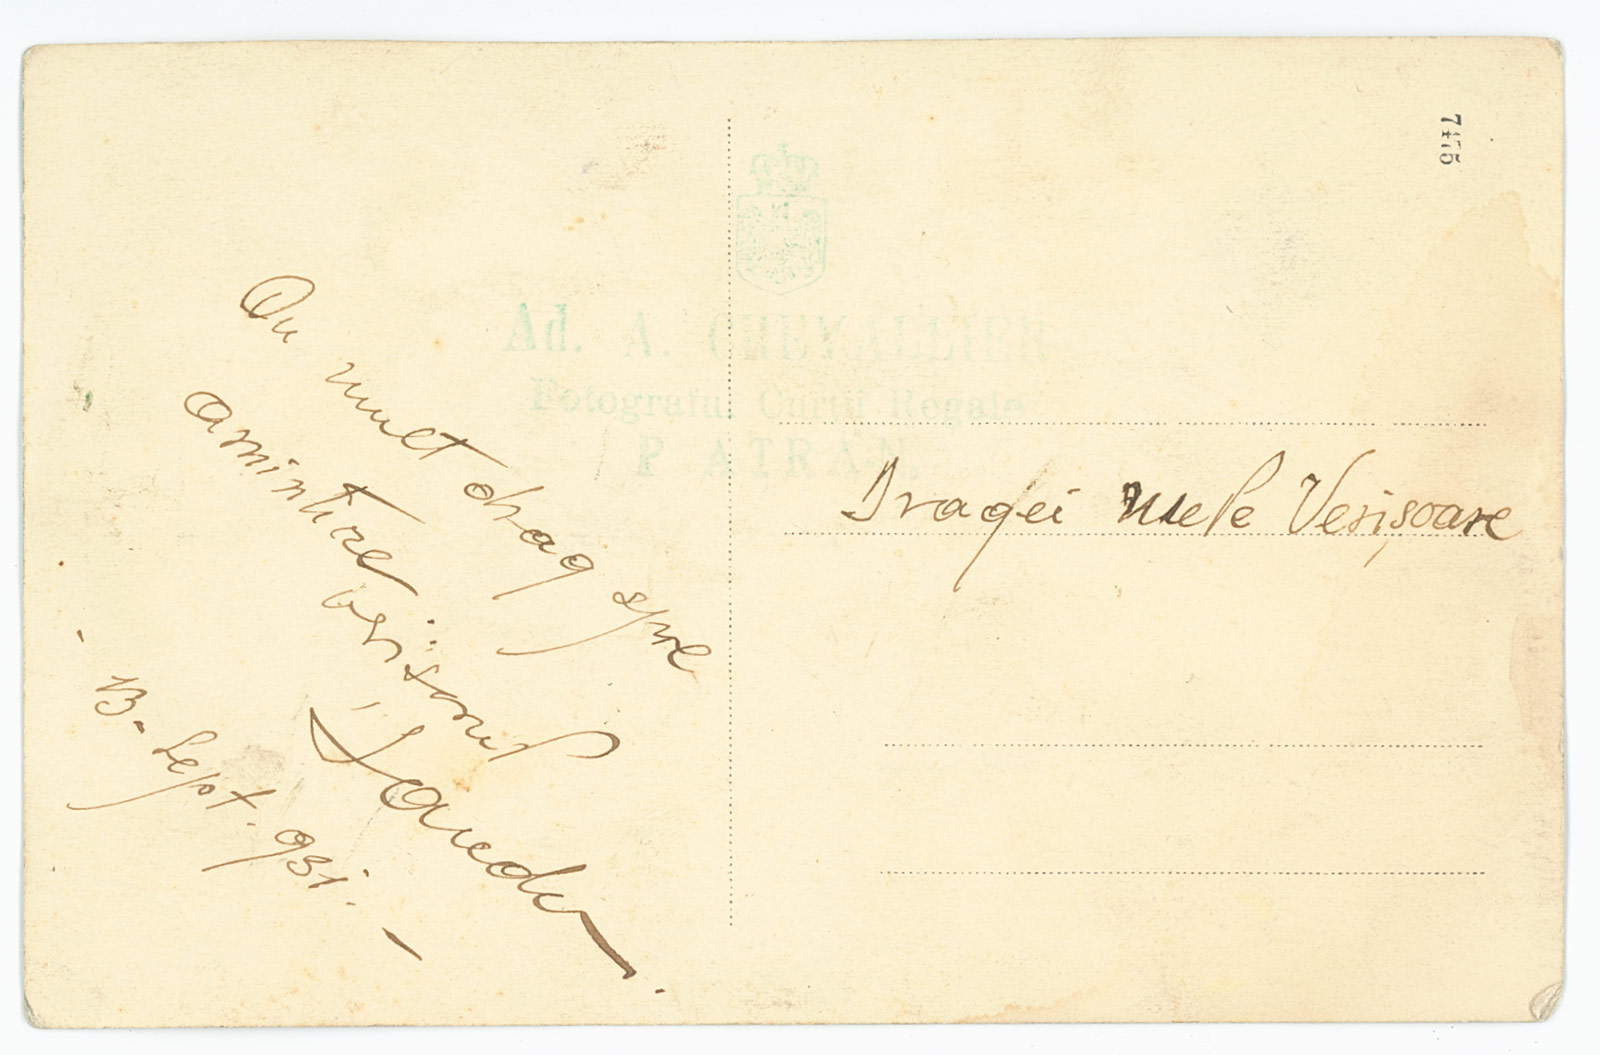 7475
Ad. A. CHEVALLIER
Fotograful Curtii Regale
P. ATRA-N.
Cu mult drag spre
amintire verișoarei
Sandu.
13. Sept. 931. –
Dragei mele Verișoare